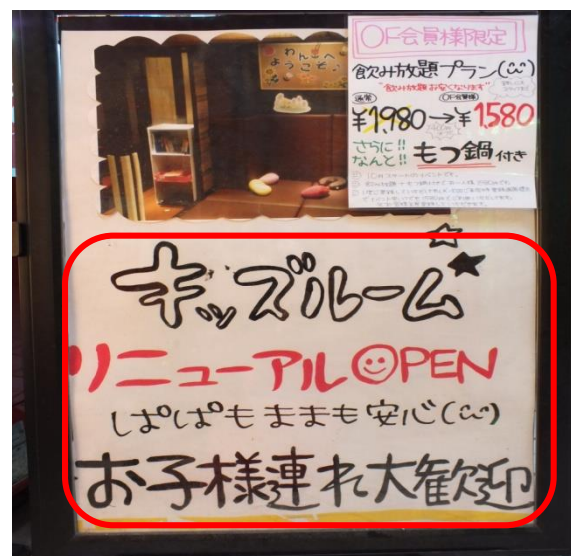 わんこへ
ようこそ
OF会員様限定
飲み放題プラン(^^)
"飲み放題お安くなります"
通常
OF会員様
¥1,980→¥1,580
さらに!!
なんと!! もつ鍋付き
キッズルーム
リニューアルOPEN
ぱぱもままも安心(^^)
お子様連れ大歓迎